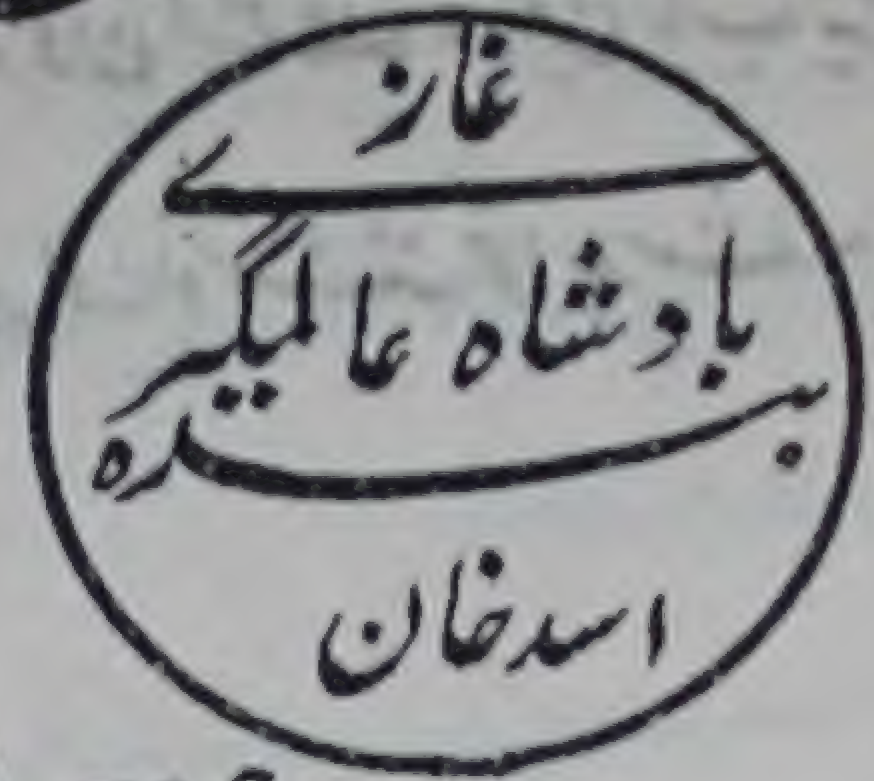 غازے
بادشاہ عالمگیر
بندہ
اسد خان